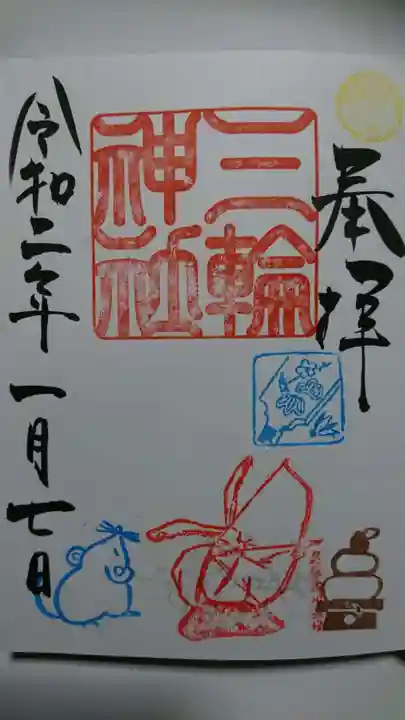 奉拝
三輪
神社
令和二年一月七日